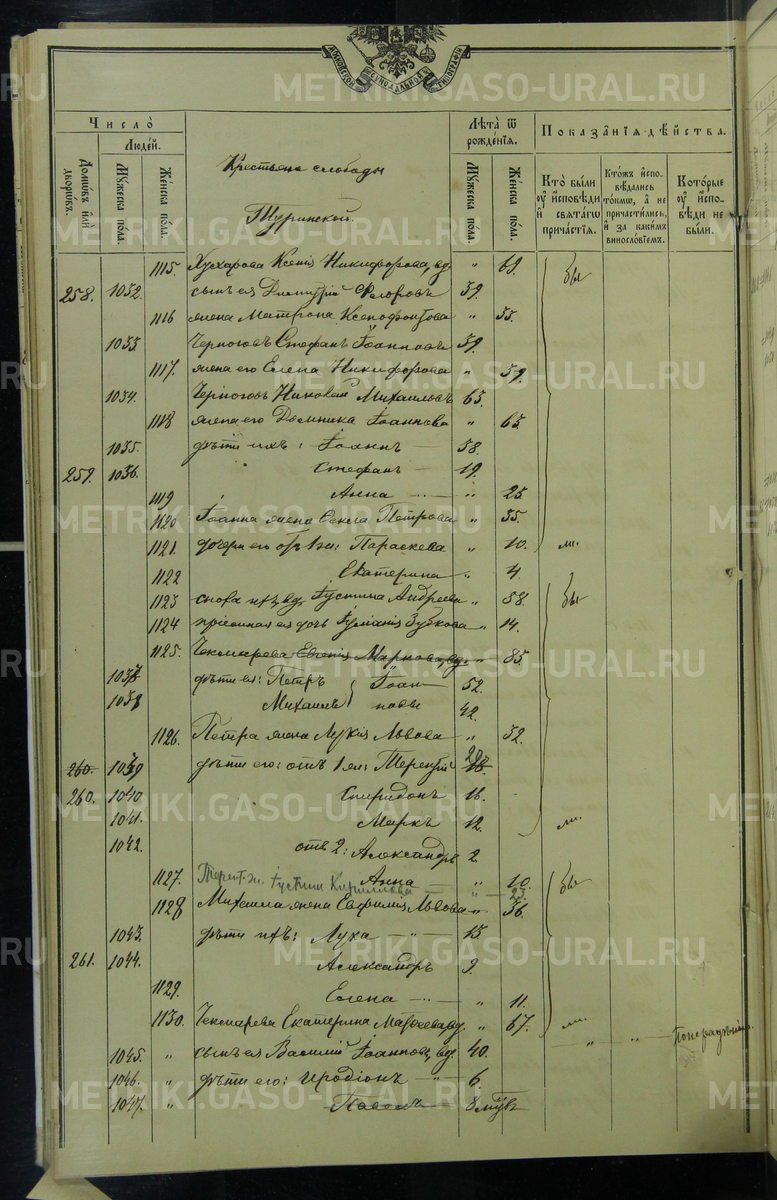 МОСКОВСКОЙ СУНОДАЛЬНОЙ ТИПОГРАФІИ
METRIKI.GASO-URAL.RU
Число
Людей.
Домѡвъ или дворѡвъ.
Мужеска пола.
Женска пола.
Крестьяне слободы
Туринской.
Лѣта ѿ рожденія.
Мужеска пола.
Женска пола.
Показанія дѣйства.
Кто были оу исповѣди и святагѡ причастія.
Ктожъ исповѣдались токмѡ, а не причастились, и за какимъ винословіемъ.
Которые оу исповѣди не были.
1115. Ксенія Никифорова, вд. " 69. бы
258. 1032. сынъ ея Димитрій Ѳедоровъ 59.
1116 жена Матрона Ксенофонтова " 55.
1033. Стефанъ Іоанновъ 59.
1117. жена его Елена Никифорова " 59.
1034. Николай Михаиловъ 65.
1118 жена его Домника Іоаннова " 65.
1035. дѣти ихъ: Іоаннъ — 38.
259. 1036. Стефанъ — 19.
1119 Анна — " 25
1120 Іоанна жена Петрова " 35.
1121. дочери его отъ 1 ж: Параскева " 10. ли.
1122 Екатерина " 4.
1123 сноха ихъ, вд. Іустина Андреева " 58. бы
1124 пріемная ея дочь Іуліанія Зубкова " 14.
1125. Евгенія Маркова, вд. " 85.
1037 дѣти ея: Петръ } Іоан 52.
1038 Михаилъ новы 42.
1126. Петра жена Лукія Львова " 52.
260. 1039 дѣти его: отъ 1 ж: Терентій 20
260. 1040 Спиридонъ 16.
1041. Маркъ 12. ли.
1042. отъ 2: Александръ 2
1127. Анна " 10. бы
Терент. ж. Іустин Кириллова —
1128 Михаила жена Евфимія Львова " 36.
1043. дѣти ихъ: Лука — " — 15
261. 1044. Александръ 9.
1129. Елена — " 11.
1130. Екатерина вд. " 67. ли.
1045. " сынъ ея Василій Іоанновъ, вд. 40.
1046. " дѣти его: Иродіонъ — " 6.
1047. " Павелъ 8 мѣс